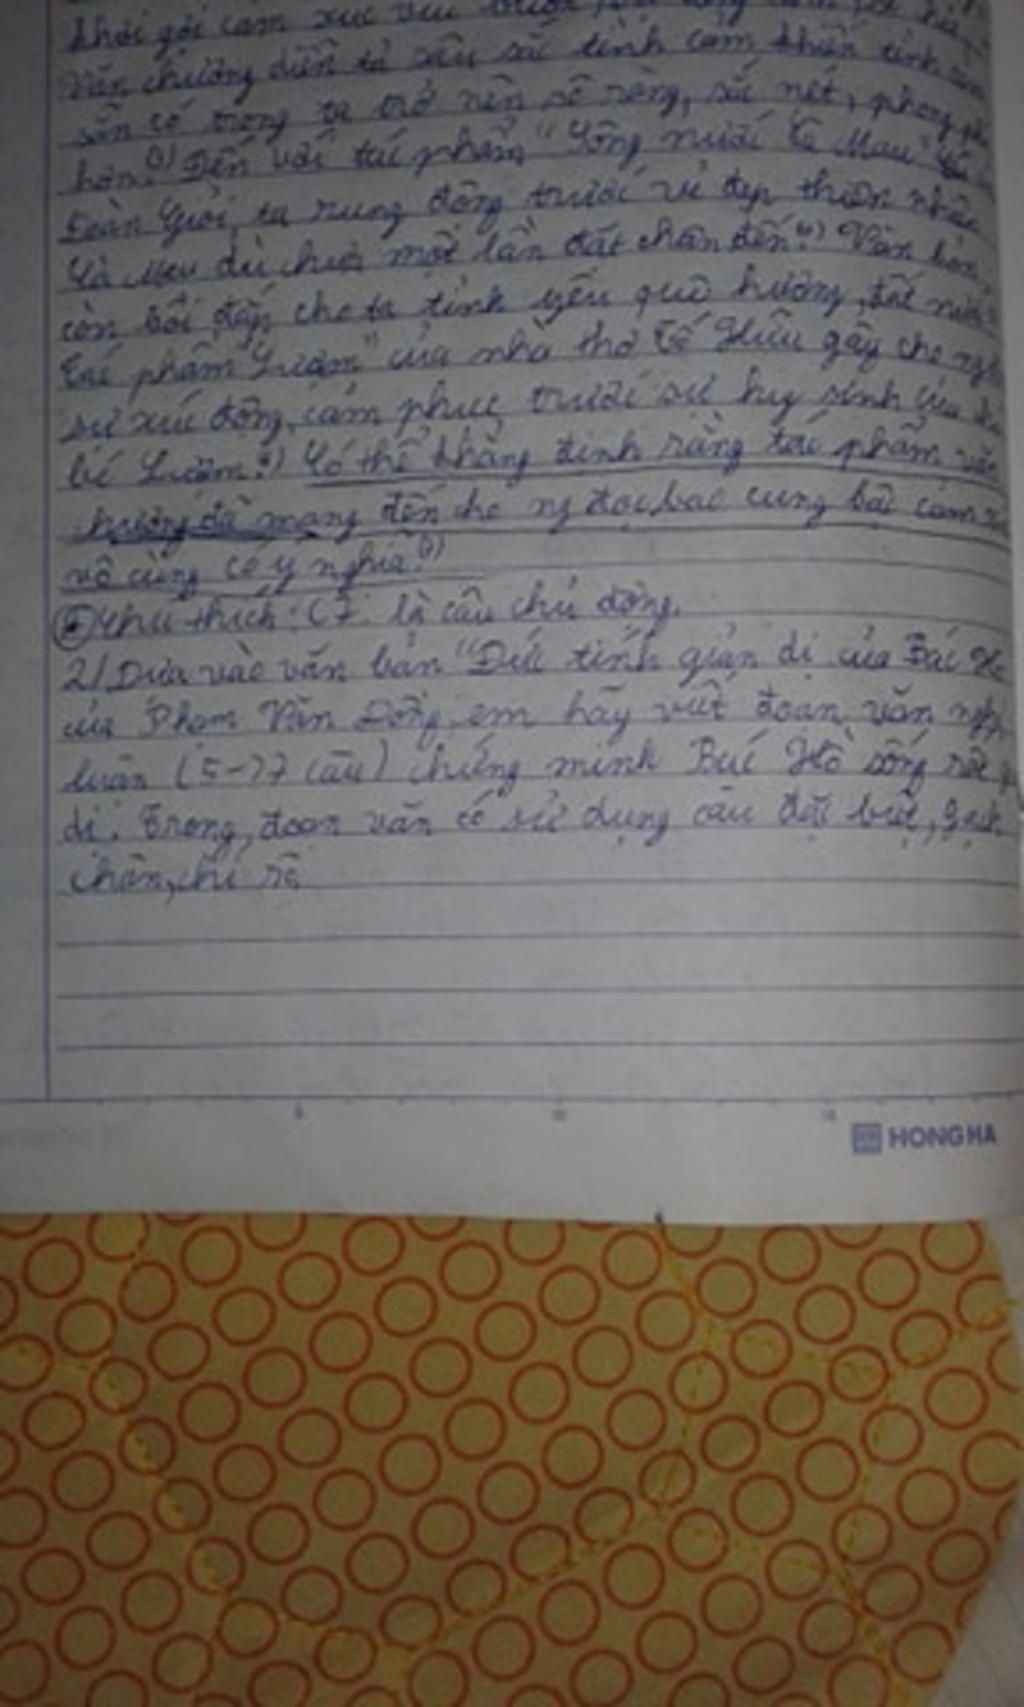 khơi gợi cảm xúc
Văn chương diễn tả sâu sắc tình cảm khiến tình cảm
sẵn có trong ta trở nên rõ ràng, sắc nét, phong phú
hơn. Đến với tác phẩm "Sông nước Cà Mau" của
Đoàn Giỏi, ta rung động trước vẻ đẹp thiên nhiên
Cà Mau dù chưa một lần đặt chân đến. Văn bản
còn bồi đắp cho ta tình yêu quê hương, đất nước
Tác phẩm "Lượm" của nhà thơ Tố Hữu gây cho người
sự xúc động, cảm phục trước sự hy sinh của
bé Lượm. Có thể khẳng định rằng tác phẩm văn
chương đã mang đến cho ng đọc bao cung bậc cảm xúc
vô cùng có ý nghĩa. (7)
Chú thích: C7: là câu chủ động.
2/ Dựa vào văn bản "Đức tính giản dị của Bác Hồ
của Phạm Văn Đồng, em hãy viết đoạn văn nghị
luận (5->7 câu) chứng minh Bác Hồ sống rất
dị. Trong đoạn văn có sử dụng câu đặc biệt, gạch
chân, chỉ rõ.
5 10 15
HONG HA